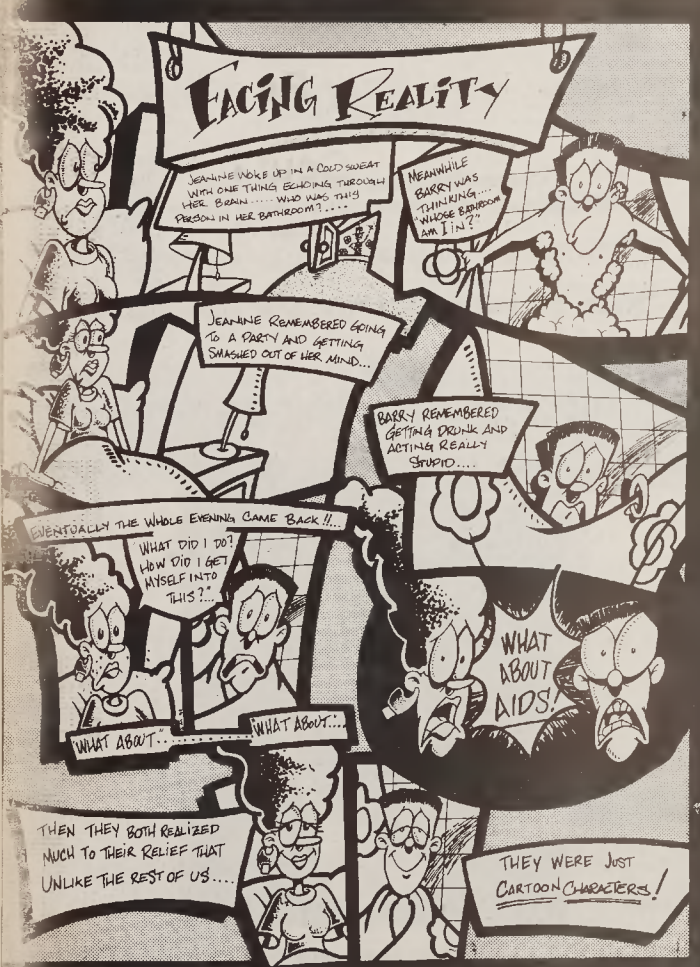 FACING REALITY
JEANINE WOKE UP IN A COLD SWEAT
WITH ONE THING ECHOING THROUGH
HER BRAIN ..... WHO WAS THIS
PERSON IN HER BATHROOM?....
MEANWHILE
BARRY WAS
THINKING....
"WHOSE BATHROOM
AM I IN?"
JEANINE REMEMBERED GOING
TO A PARTY AND GETTING
SMASHED OUT OF HER MIND...
BARRY REMEMBERED
GETTING DRUNK AND
ACTING REALLY
STUPID....
EVENTUALLY THE WHOLE EVENING CAME BACK!!...
"WHAT DID I DO?
HOW DID I GET
MYSELF INTO
THIS?"...
"WHAT ABOUT"..........
"WHAT ABOUT"...
WHAT
ABOUT
AIDS!
THEN THEY BOTH REALIZED
MUCH TO THEIR RELIEF THAT
UNLIKE THE REST OF US....
THEY WERE JUST
CARTOON CHARACTERS!